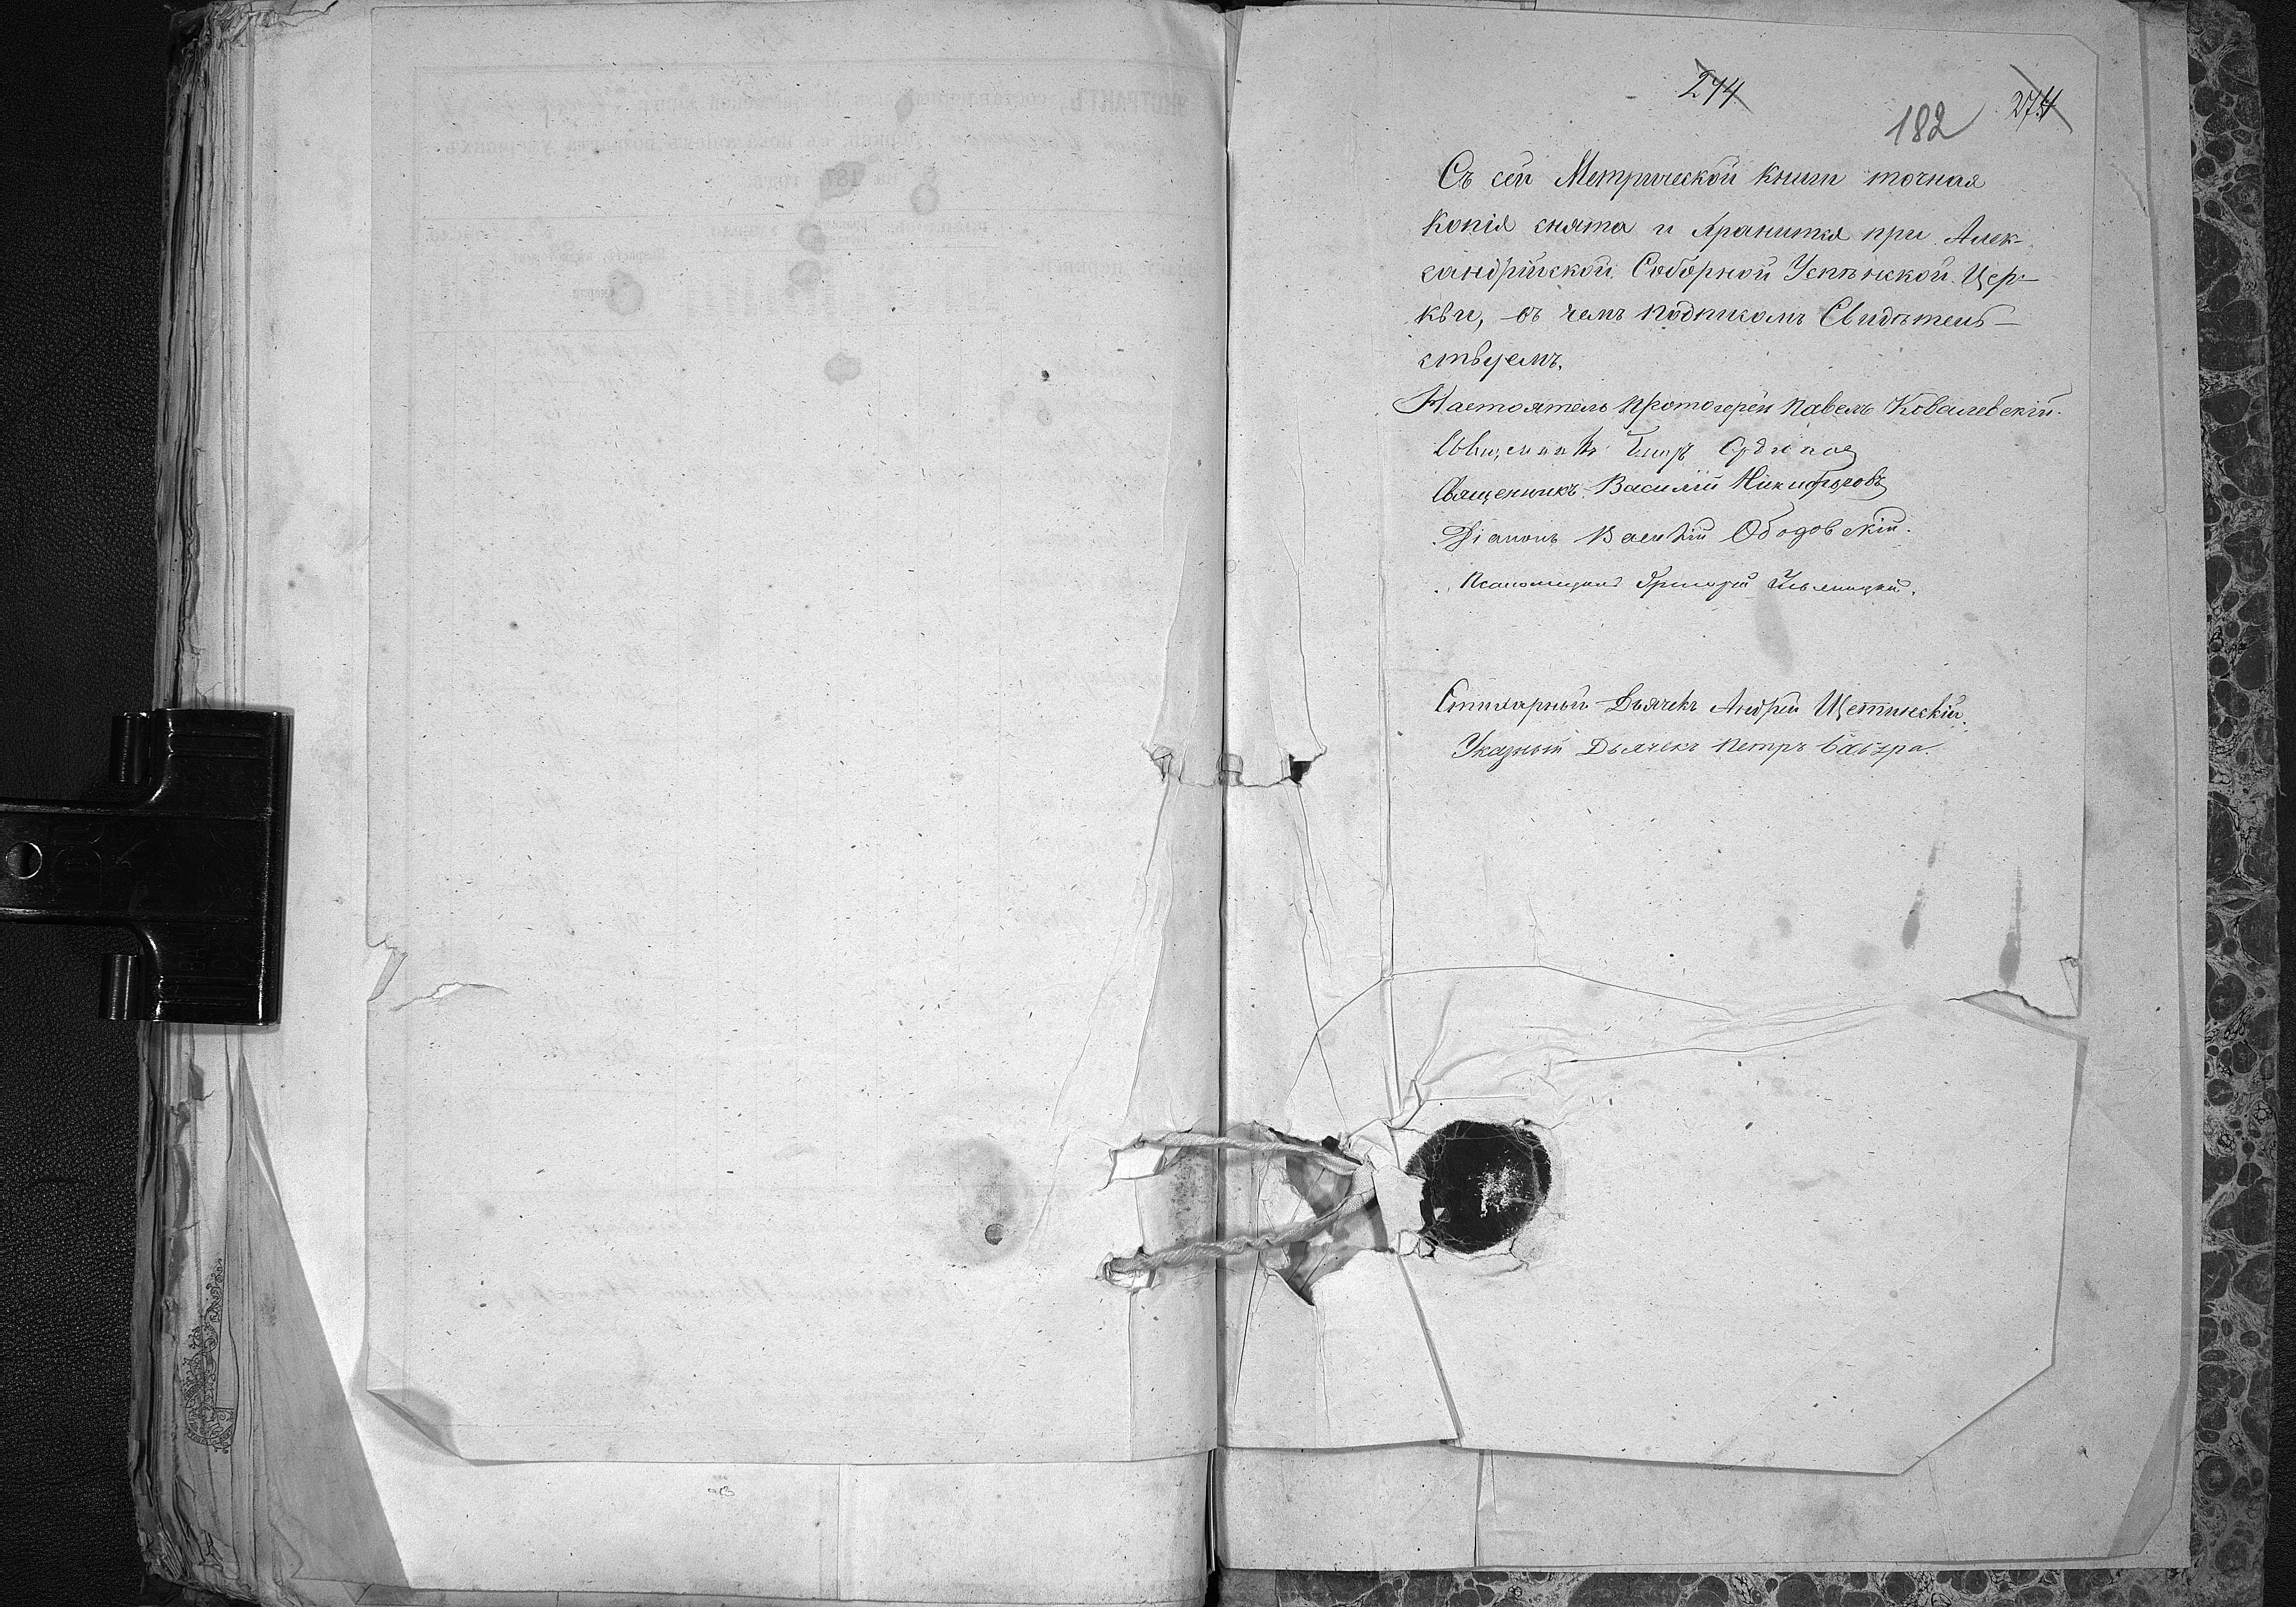 274
182 274
Съ сей Метрической книги точная
копія снята и хранится при Алек-
сандрійской Соборной Успѣнской Цер-
кви, въ чемъ подписомъ Свидѣтель-
ствуемъ.
Настоятель Протоіерей Павелъ Ковалевскій.
Священникъ
Священникъ Василій Никифоровъ
Діаконъ Василій Ободовскій.
Псаломщикъ Григорій
Стихарный Дьячекъ Андрей Щетинскій.
Указный Дьячекъ Петръ